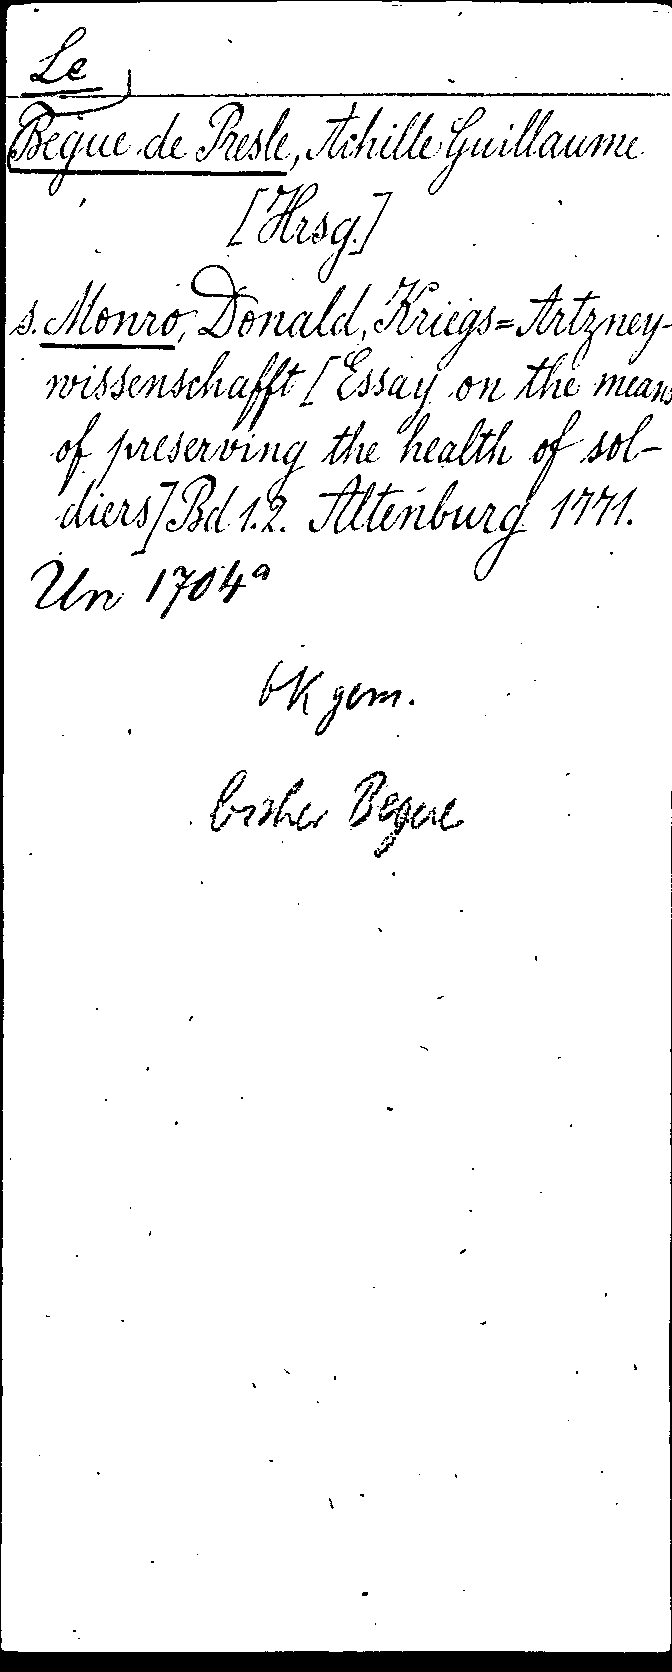 Le
Bègue de Presle, Achille Guillaume
[Hrsg.]
s. Monro, Donald, Kriegs=Artzney-
wissenschafft [Essay on the means
of preserving the health of sol-
diers] Bd 1.2. Altenburg 1771.
Un 1704ª
bK gem.
bisher Begue